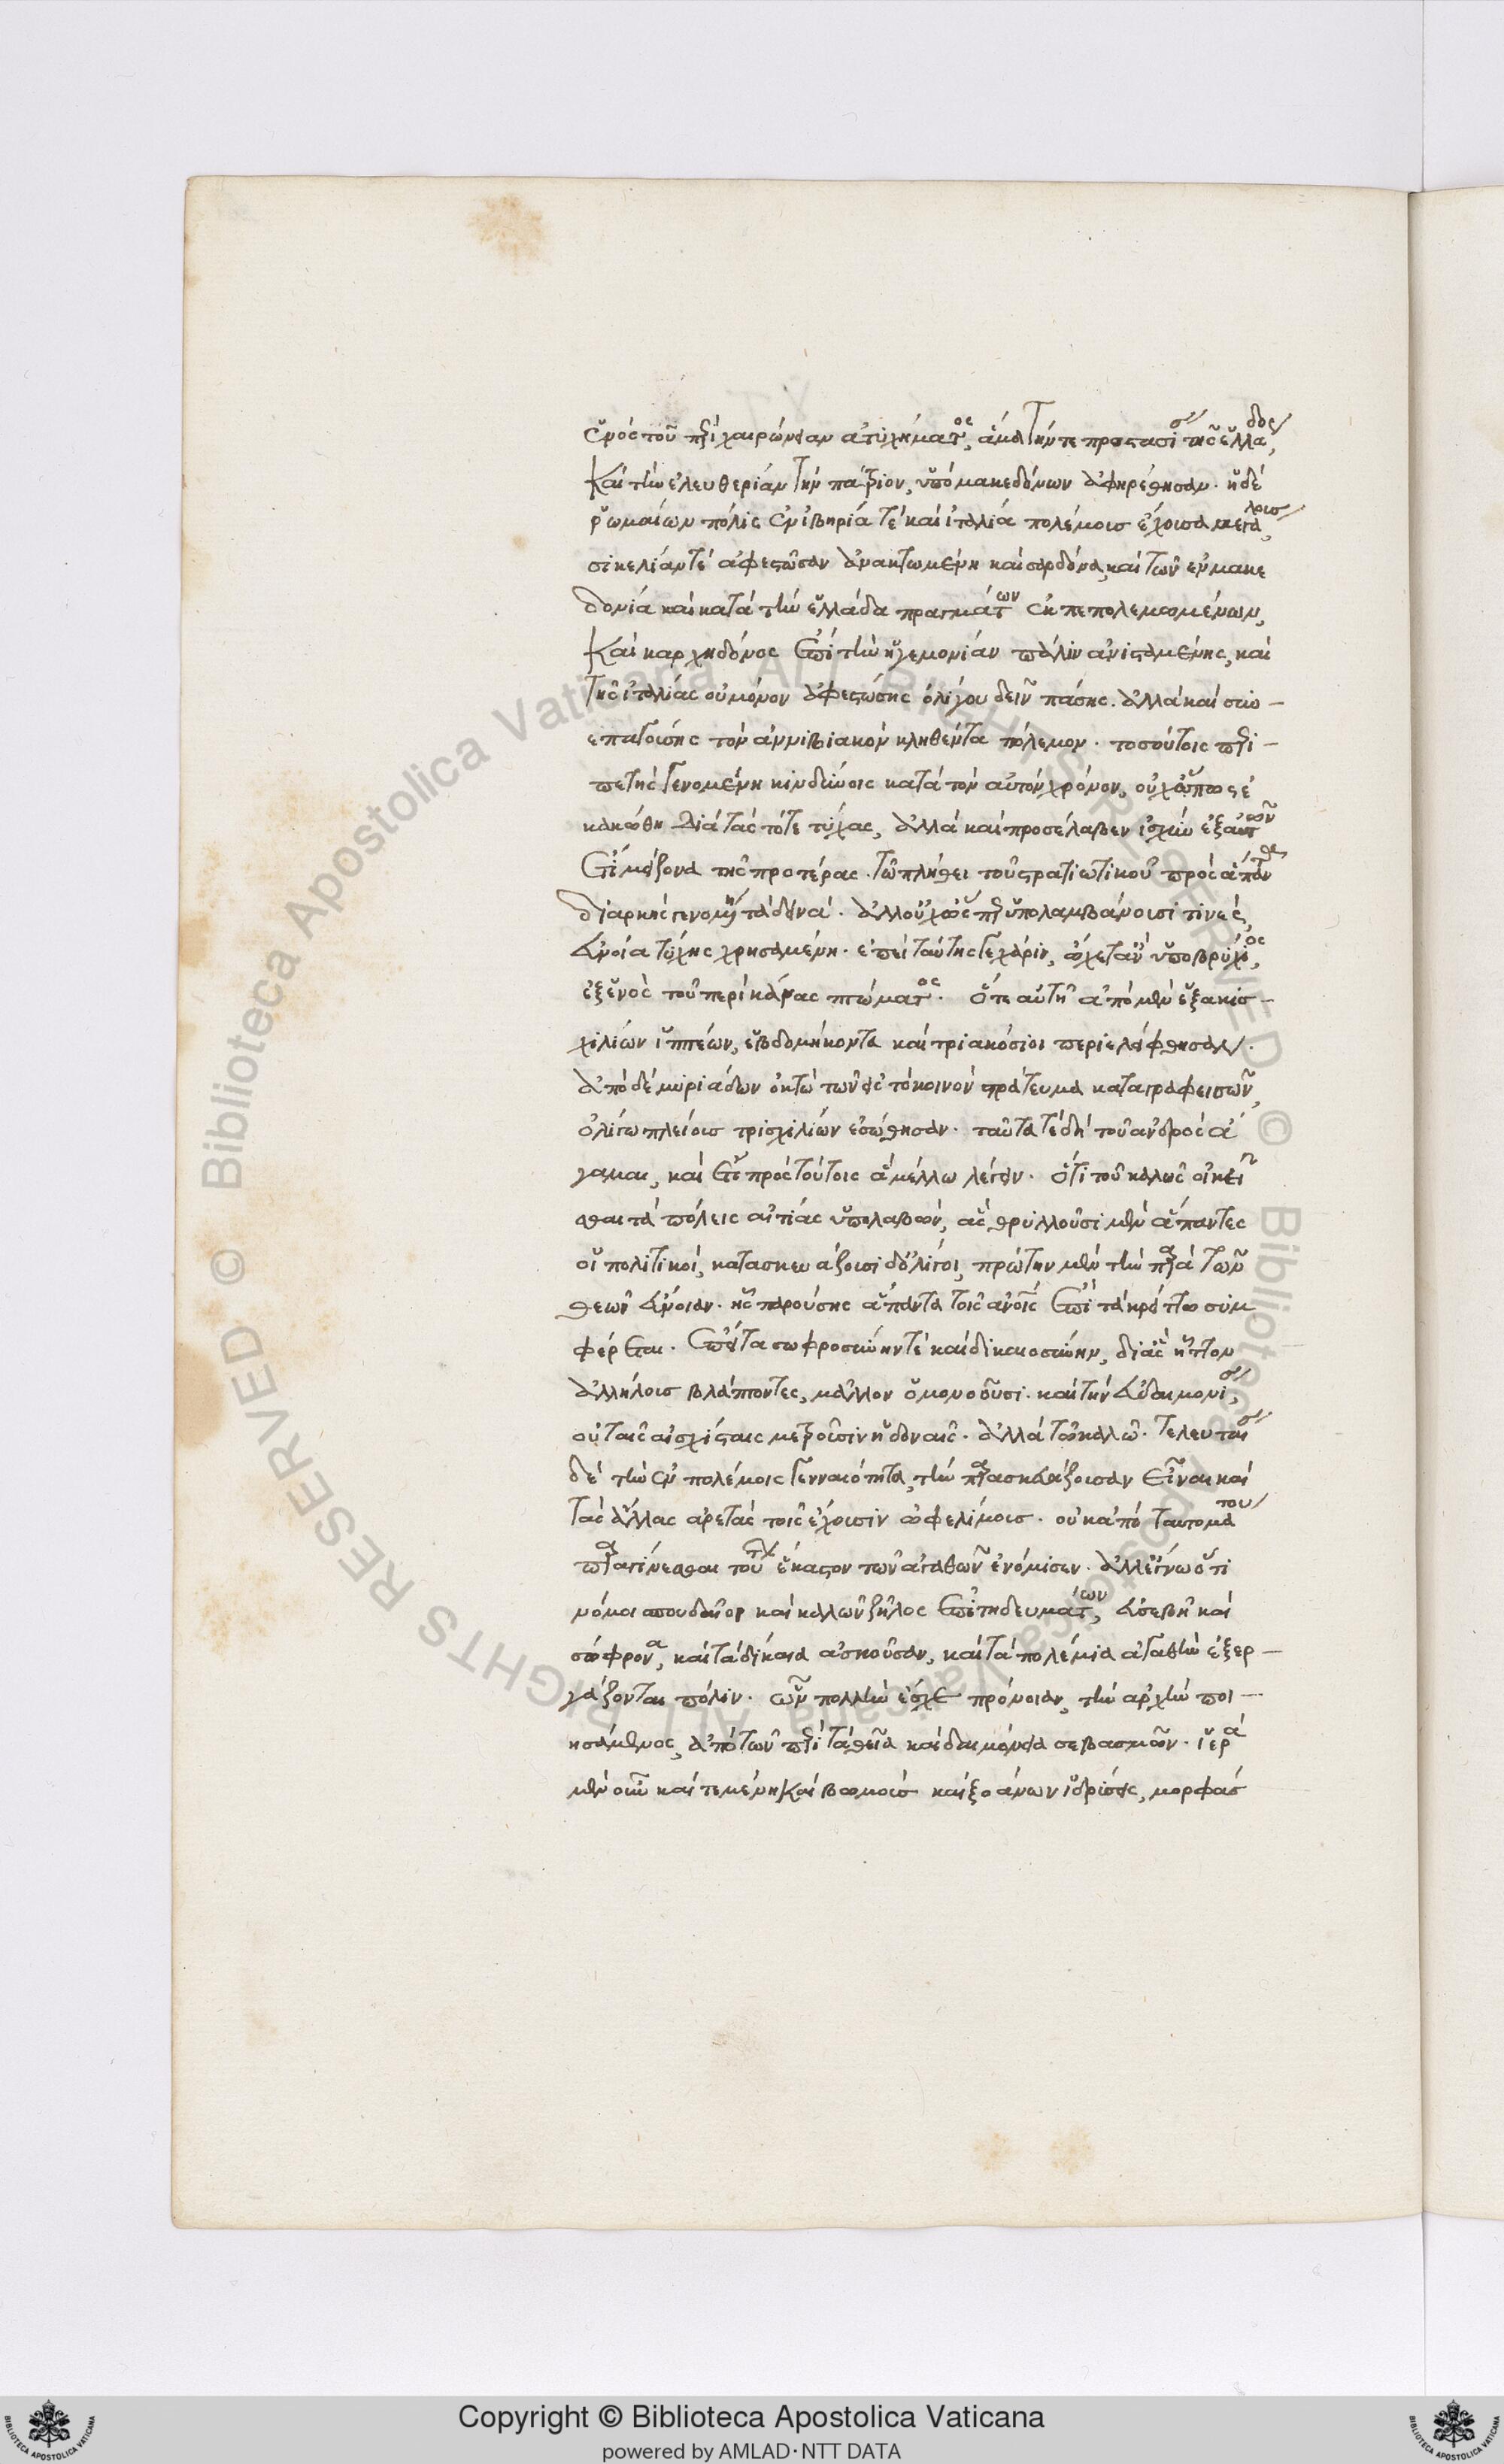 ἑνὸς τοῦ περὶ χαιρώνειαν ἀτυχήματος, ἅμα τήν τε προστασίαν τῆς ἑλλάδος,
καὶ τὴν ἐλευθερίαν τὴν πάτριον, ὑπὸ μακεδόνων ἀφηρέθησαν· ἡ δὲ
ῥωμαίων πόλις ἐν ἰβηρίᾳ τὲ καὶ ἰταλίᾳ πολέμους ἔχουσα μεγάλους,
σικελίαν τὲ ἀφεστῶσαν ἀνακτωμένη καὶ σαρδόνα, καὶ τῶν ἐν μακε
δονίᾳ καὶ κατὰ τὴν ἑλλάδα πραγμάτων ἐκπεπολεμωμένων,
καὶ καρχηδόνος ἐπὶ τὴν ἡγεμονίαν πάλιν ἀνισταμένης, καὶ
τῆς ἰταλίας οὐ μόνον ἀφεστώσης ὀλίγου δεῖν πάσης. ἀλλὰ καὶ συν-
επαγούσης τὸν ἀννιβιακὸν κληθέντα πόλεμον· τοσούτοις περι-
πετὴς γενομένη κινδύνοις κατὰ τὸν αὐτὸν χρόνον, οὐχ ὅπως ἐ
κακώθη διὰ τὰς τότε τύχας, ἀλλὰ καὶ προσέλαβεν ἰσχὺν ἐξ αὐτῶν
ἔτι μείζονα τῆς προτέρας. τῷ πλήθει τοῦ στρατιωτικοῦ πρὸς ἅπαντα
διαρκὴς γενομένη τὰ δεινά· ἀλλ οὐχ ὥς περ ὑπολαμβάνουσί τινες,
εὐνοίᾳ τύχης χρησαμένη· ἐπεὶ ταύτης γε χάριν, ᾤχετ ἂν ὑποβρύχιος,
ἐξ ἑνὸς τοῦ περὶ κάννας πτώματος· ὅτε αὐτῇ ἀπὸ μὲν ἑξακισ-
χιλίων ἱππέων, ἑβδομήκοντα καὶ τριακόσιοι περιελείφθησαν·
ἀπὸ δὲ μυριάδων ὀκτὼ τῶν εἰς τὸ κοινὸν στράτευμα καταγραφεισῶν,
ὀλίγῳ πλείους τρισχιλίων ἐσώθησαν· ταῦτά τε δὴ τοῦ ἀνδρὸς ἄ
γαμαι, καὶ ἔτι πρὸς τούτοις ἃ μέλλω λέγειν· ὅτι τοῦ καλῶς οἰκεῖ
σθαι τὰ πόλεις αἰτίας ὑπολαβὼν, ἃς θρυλλοῦσι μὲν ἅπαντες
οἱ πολιτικοί, κατασκευάζουσι δ ὀλίγοι, πρώτην μὲν τὴν παρὰ τῶν
θεῶν εὔνοιαν· ἧς παρούσης ἅπαντα τοῖς ἀνοις ἐπὶ τὰ κρείττω συμ
φέρεται· ἔπειτα σωφροσύνην τὲ καὶ δικαιοσύνην, δι ἃς ἧττον
ἀλλήλους βλάπτοντες, μᾶλλον ὁμονοοῦσι· καὶ τὴν εὐδαιμονίαν,
οὐ ταῖς αἰσχίσταις μετροῦσιν ἡδοναῖς· ἀλλὰ τῷ καλῷ· τελευταίαν
δὲ τὴν ἐν πολέμοις γενναιότητα, τὴν παρασκευάζουσαν εἶναι καὶ
τὰς ἄλλας ἀρετὰς τοῖς ἔχουσιν ὠφελίμους· οὐκ ἀπὸ ταυτομάτου
παραγίνεσθαι τούτων ἕκαστον τῶν ἀγαθῶν ἐνόμισεν· ἀλλ ἔγνω ὅτι
νόμοι σπουδαῖοι καὶ καλῶν ζῆλος ἐπιτηδευμάτων, εὐσεβῆ καὶ
σώφρονα, καὶ τὰ δίκαια ἀσκοῦσαν, καὶ τὰ πολέμια ἀγαθὴν ἐξερ-
γάζονται πόλιν· ὧν πολλὴν ἔσχε πρόνοιαν, τὴν ἀρχὴν ποι-
ησάμενος, ἀπὸ τῶν περὶ τὰ θεῖα καὶ δαιμόνια σεβασμῶν· ἱερὰ
μὲν οὖν καὶ τεμένη καὶ βωμοὺς καὶ ξοάνων ἱδρύσεις, μορφάς
Copyright © Biblioteca Apostolica Vaticana
powered by AMLAD·NTT DATA